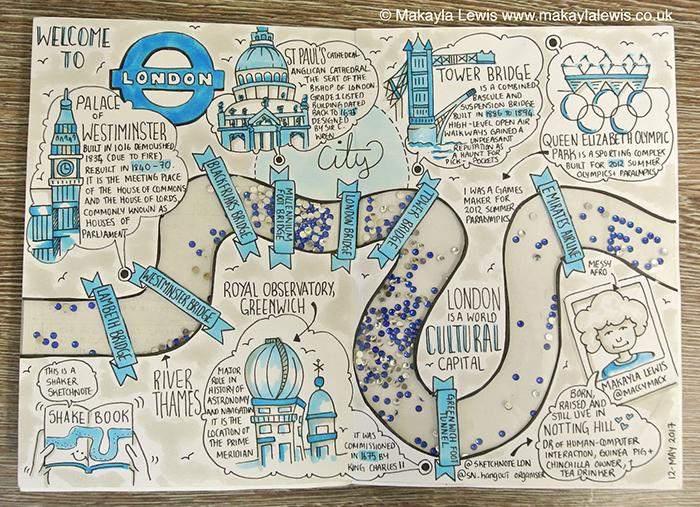 © Makayla Lewis www.makaylalewis.co.uk
WELCOME
TO
LONDON
PALACE
OF
WESTIMINSTER
BUILT IN 1016 DEMOLISHED
1834 (DUE TO FIRE)
REBUILT IN 1840-70.
IT IS THE MEETING PLACE
OF THE HOUSE OF COMMONS
AND THE HOUSE OF LORDS,
COMMONLY KNOWN AS
HOUSES OF
PARLIAMENT
ST PAUL'S CATHEDRAL
ANGLICAN CATHEDRAL
THE SEAT OF THE
BISHOP OF LONDON
GRADE 1 LISTED
BUILDING DATED
BACK TO 1675
DESIGNED
BY SIR C
WREN
City
TOWER BRIDGE
IS A COMBINED
BASCULE AND
SUSPENSION BRIDGE
BUILT IN 1886 TO 1894.
HIGH-LEVEL OPEN AIR
WALKWAYS GAINED A
UNPLEASANT
REPUTATION
AS A HAUNT FOR
POCKETS
QUEEN ELIZABETH OLYMPIC
PARK IS A SPORTING COMPLEX
BUILT FOR 2012 SUMMER
OLYMPICS & PARALMPICS
BLACKFRIARS BRIDGE
MILLENNIUM
BRIDGE
LONDON BRIDGE
TOWER BRIDGE
I WAS A GAMES
MAKER FOR
2012 SUMMER
PARALYMPICS
EMIRATES AIRLINE
LAMBETH BRIDGE
WESTMINSTER BRIDGE
RIVER
THAMES
ROYAL OBSERVATORY,
GREENWICH
MAJOR
ROLE IN
HISTORY OF
ASTRONOMY
AND NAVIGATION
IT IS THE
LOCATION OF
THE PRIME
MERIDIAN
IT WAS
COMMISSIONED
IN 1675 BY
KING CHARLES II
LONDON
IS A WORLD
CULTURAL
CAPITAL
GREENWICH FOOT
TUNNEL
MESSY
AFRO
MAKAYLA LEWIS
@MACCYMACX
BORN,
RAISED AND
STILL LIVE IN
NOTTING HILL
DR OF HUMAN-COMPUTER
INTERACTION, GUINEA PIG +
CHINCHILLA OWNER, +
TEA DRINKER
12-MAY 2017
@SKETCHNOTE LDN
@SN_hangout organiser
THIS IS A
SHAKER
SKETCHNOTE
SHAKE BOOK